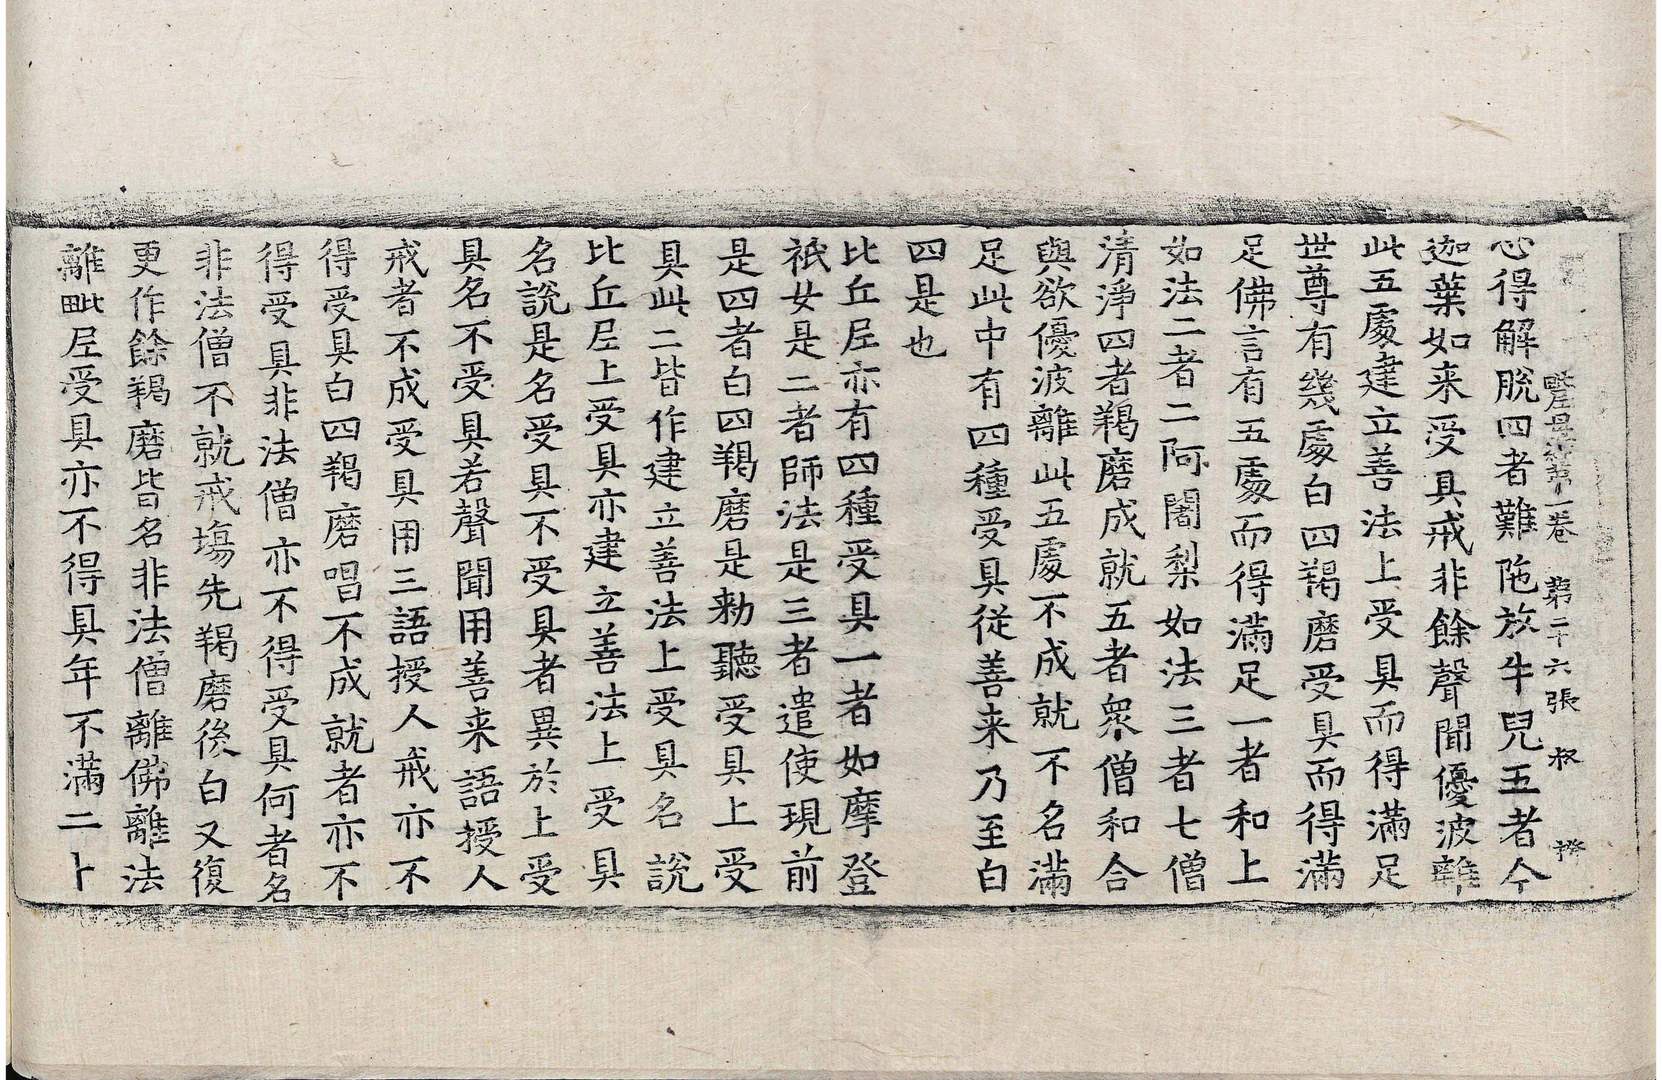 毗尼母經第一卷 第二十六張 叔
心得解脫四者難陁放牛兒五者今
迦葉如来受具戒非餘聲聞優波離
此五處建立善法上受具而得滿足
世尊有幾處白四羯磨受具而得滿
足佛言有五處而得滿足一者和上
如法二者二阿闍梨如法三者七僧
清淨四者羯磨成就五者衆僧和合
與欲優波離此五處不成就不名滿
足此中有四種受具従善来乃至白
四是也
比丘尼亦有四種受具一者如摩登
祇女是二者師法是三者遣使現前
是四者白四羯磨是勑聽受具上受
具此二皆作建立善法上受具名說
比丘尼上受具亦建立善法上受具
名說是名受具不受具者異於上受
具名不受具若聲聞用善来語授人
戒者不成受具用三語授人戒亦不
得受具白四羯磨唱不成就者亦不
得受具非法僧亦不得受具何者名
非法僧不就戒場先羯磨後白又復
更作餘羯磨皆名非法僧離佛離法
離毗尼受具亦不得具年不滿二十